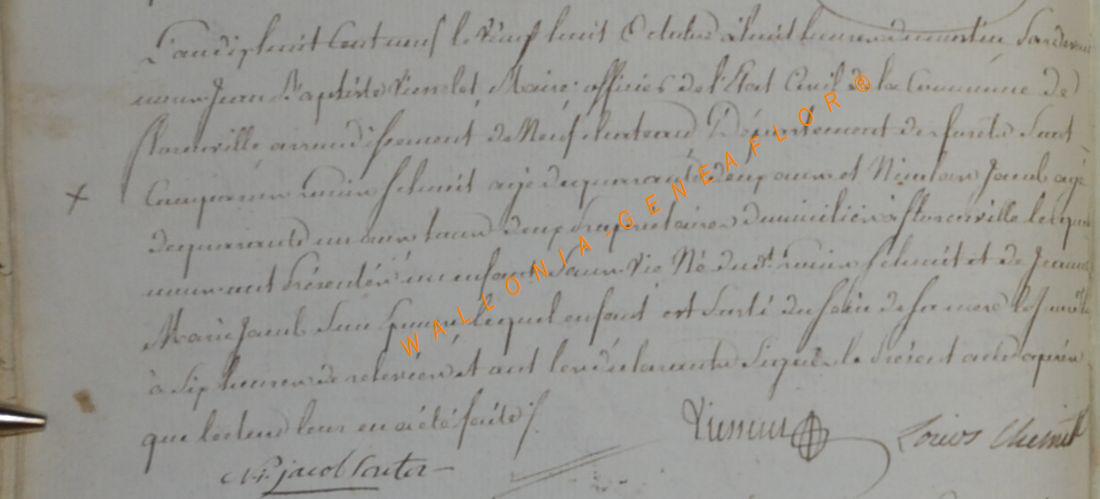 L'an dix huit cent neuf le vingt huit Octobre à huit heures du matin Pardevant
nous Jean Baptiste Viesslet, Maire officier de l'Etat Civil de la Commune de
florenville arrondissement de Neufchateau Département des forêts sont
+ Comparus Louis Schmit agé de quarante deux ans et Nicolas Jacob agé
de quarante un ans tous deux propriétaires domiciliés à florenville lesquels
nous ont présenté un enfant sans vie Né dudt. Louis Schmit et de Jeanne
Marie Jacob son épouse, lequel enfant est sorti du sein de sa mere
à six heures de et ont les déclarants signés le présent acte après
que lecture leur en a été faite
Louis Chemit
N. jacob
WALLONIA-GENEAFLOR®